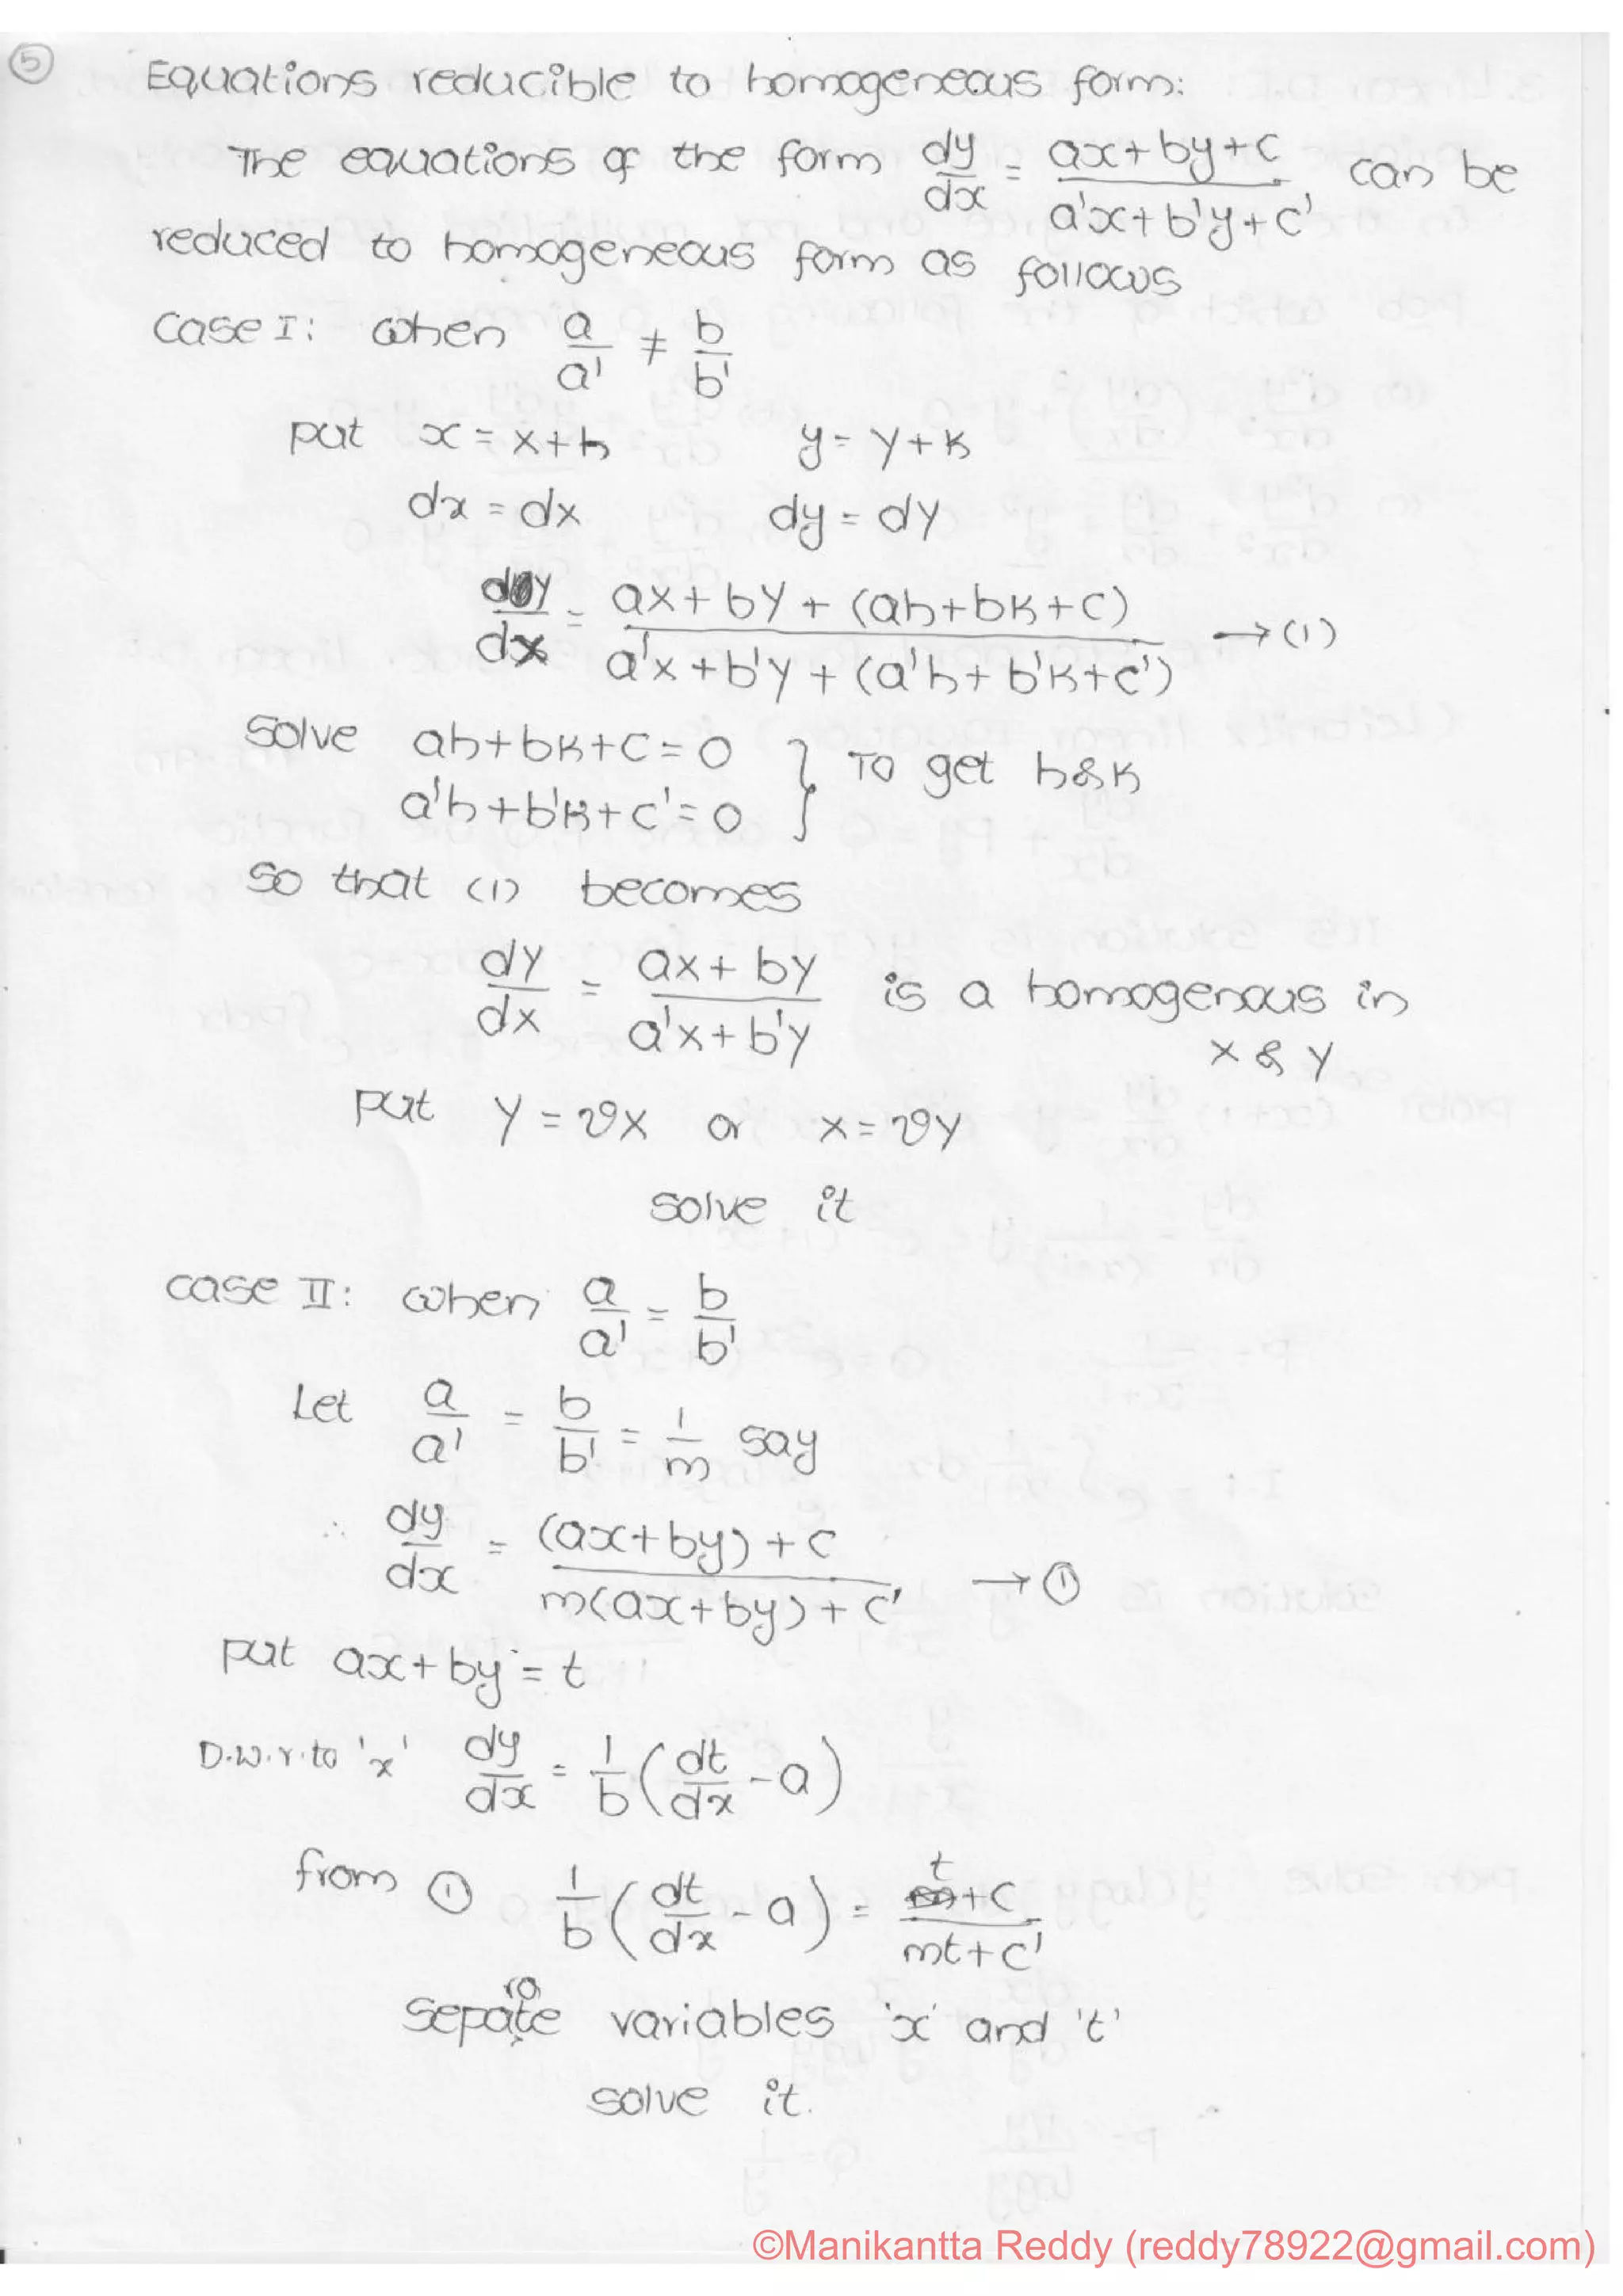 5
Equations reducible to homogeneous form:
The equations of the form dy/dx = (ax+by+c)/(a'x+b'y+c') can be
reduced to homogeneous form as follows
Case I: when a/a' ≠ b/b'
put x = X+h y = Y+k
dx = dX dy = dY
dY/dX = (aX+bY+(ah+bk+c))/(a'X+b'Y+(a'h+b'k+c')) → (1)
Solve ah+bk+c=0
a'h+b'k+c'=0 } To get h&k
So that (1) becomes
dY/dX = (aX+bY)/(a'X+b'Y) is a homogenous in
X & Y
Put Y = vX or X = vY
solve it
case II: when a/a' = b/b'
Let a/a' = b/b' = 1/m say
∴ dy/dx = ((ax+by)+c)/(m(ax+by)+c') → ①
put ax+by = t
D.w.r.to 'x' dy/dx = 1/b (dt/dx - a)
from ① 1/b (dt/dx - a) = (t+c)/(mt+c')
Separate variables 'x' and 't'
solve it.
©Manikantta Reddy (reddy78922@gmail.com)